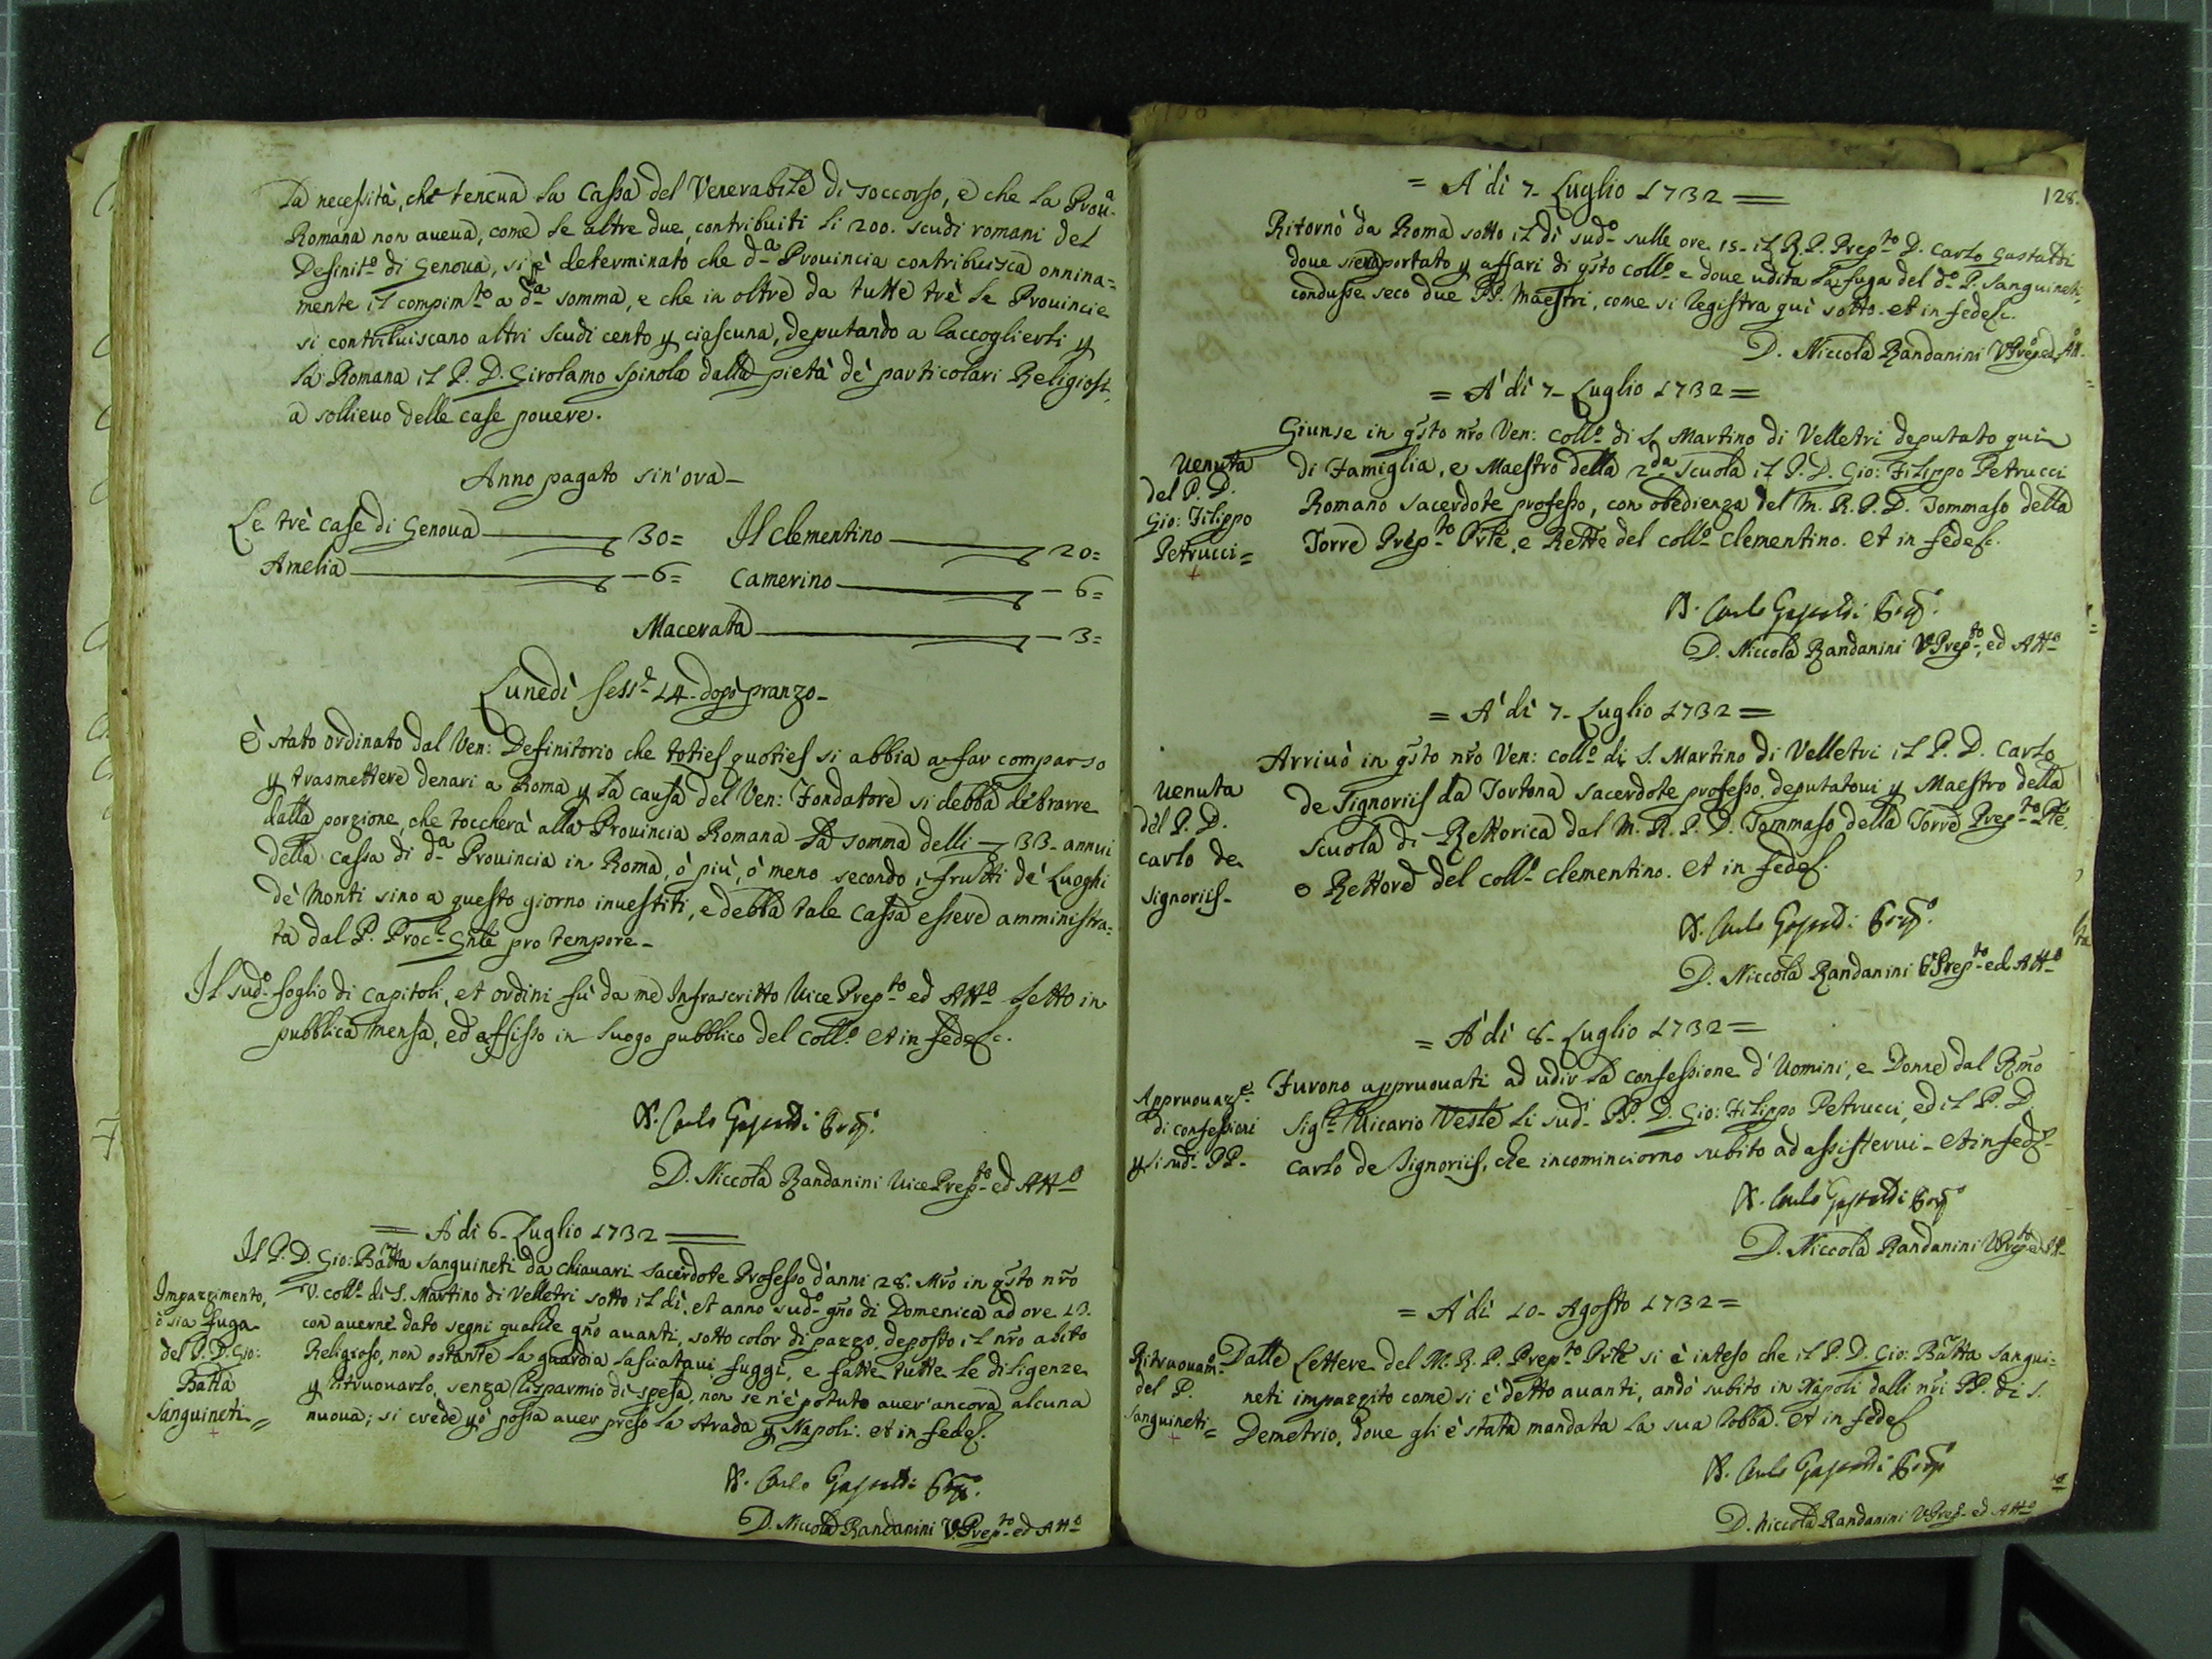 la necessità, che teneua la Cassa del Venerabile di soccorso, e che la Prouª
Romana non aueua, come le altre due, contribuiti li 200. scudi romani del
Definit.º di Genoua, si è determinato che d.ª Prouincia contribuisca onnina=
mente il compim.to a d.ª somma, e che in oltre da tutte trè le Prouincie
si contribuiscano altri scudi cento p ciascuna, deputando a raccoglierli p
la Romana il P. D. Girolamo Spinola dalla pietà de' particolari Religiosi,
a sollieuo delle case pouere.
Anno pagato sin'ora_
Le trè case di Genoua 30= Il Clementino 20=
Amelia 6= Camerino 6=
Macerata 3=
Lunedì Sess.e 14. dopò pranzo_
È stato ordinato dal Ven: Definitorio che toties quoties si abbia a far comparso
p trasmettere denari a Roma p la causa del Ven: Fondatore si debba detrarre
dalla porzione, che toccherà alla Prouincia Romana la somma delli 33. annui
della cassa di d.ª Prouincia in Roma, ò più, ò meno secondo i frutti de' Luoghi
de' Monti sino a questo giorno inuestiti, e debba tale Cassa essere amministra=
ta dal P. Proc.e Gnle pro tempore_
Il sud.º foglio di capitoli, et ordini fù da me Infrascritto Vice Prep.to ed Att.º letto in
pubblica mensa, ed affisso in luogo pubblico del Coll.º et in fede &c.
D. Carlo Gastaldi Prep.º
D. Niccola Randanini Vice Prep.to ed Att.º
= A dì 6. Luglio 1732 =
Il P. D. Gio: Batta Sanguineti da Chiauari Sacerdote Professo d'anni 28. Mrõ in qsto nrõ
V. Coll.º di S. Martino di Velletri sotto il dì, et anno sud.º gño di Domenica ad ore 13.
con auerne dato segni qualche gño auanti, sotto color di pazzo, deposto il nrõ abito
Religioso, non ostante la guardia lasciataui fuggì, e fatte tutte le diligenze
p ritruouarlo, senza risparmio di spesa, non se n'è potuto auer' ancora alcuna
nuoua; si crede pò possa auer preso la strada p Napoli. et in fede &.
Impazzimento,
ò sia fuga
del P. D. Gio:
Batta
Sanguineti=
D. Carlo Gastaldi Prep.º
D. Niccola Randanini V. Prep.to ed Att.º
128.
= A dì 7. Luglio 1732 =
Ritornò da Roma sotto il dì sud.º sulle ore 15. il R. P. Prep.to D. Carlo Gastaldi
doue siera portato p affari di qsto Coll.º e doue udita la fuga del d.º P. Sanguineti,
condusse seco due PP. Maestri, come si registra quì sotto. et in fede &c.
D. Niccola Randanini V. Prep.º ed Att.
= A dì 7. Luglio 1732 =
Giunse in qsto nrõ Ven: Coll.º di S. Martino di Velletri deputato qui
di Famiglia, e Maestro della 2.da Scuola il P. D. Gio: Filippo Petrucci
Romano sacerdote professo, con obedienza del M. R. P. D. Tommaso della
Torre Prep.to Prle, e Rettre del Coll.º Clementino. et in fede &c.
Uenuta
del P. D.
Gio: Filippo
Petrucci=
D. Carlo Gastaldi Prep.º
D. Niccola Randanini V. Prep.to, ed Att.º
= A dì 7. Luglio 1732 =
Arriuò in qsto nrõ Ven: Coll.º di S. Martino di Velletri il P. D. Carlo
de Signoriis da Tortona Sacerdote professo, deputatoui p Maestro della
Scuola di Rettorica dal M. R. P. D. Tommaso della Torre Prep.to Prle,
e Rettore del Coll.º Clementino. et in fede &.
Uenuta
del P. D.
Carlo de
Signoriis_
D. Carlo Gastaldi Prep.º
D. Niccola Randanini V. Prep.to ed Att.º
= A dì 8. Luglio 1732 =
Furono appruouati ad udir la confessione d'Uomini, e Donne dal Rmõ
Sig.r Uicario Veste li sud.i PP. D. Gio: Filippo Petrucci, ed il P. D.
Carlo de Signoriis, che incominciorno subito ad assisterui. et in fede &
Appruouaz.e
di confessioni
p li sud.i PP.
D. Carlo Gastaldi Prep.º
D. Niccola Randanini V. Prep.to ed Att.
= A dì 10. Agosto 1732 =
Dalle Lettere del M. R. P. Prep.to Prle si è inteso che il P. D. Gio: Batta Sangui=
neti impazzito come si è detto auanti, andò subito in Napoli dalli nri PP. di S.
Demetrio, doue gli è stata mandata la sua robba. et in fede &
Ritruouam.º
del P.
Sanguineti=
D. Carlo Gastaldi Prep.º
D. Niccola Randanini V. Prep.º ed Att.º